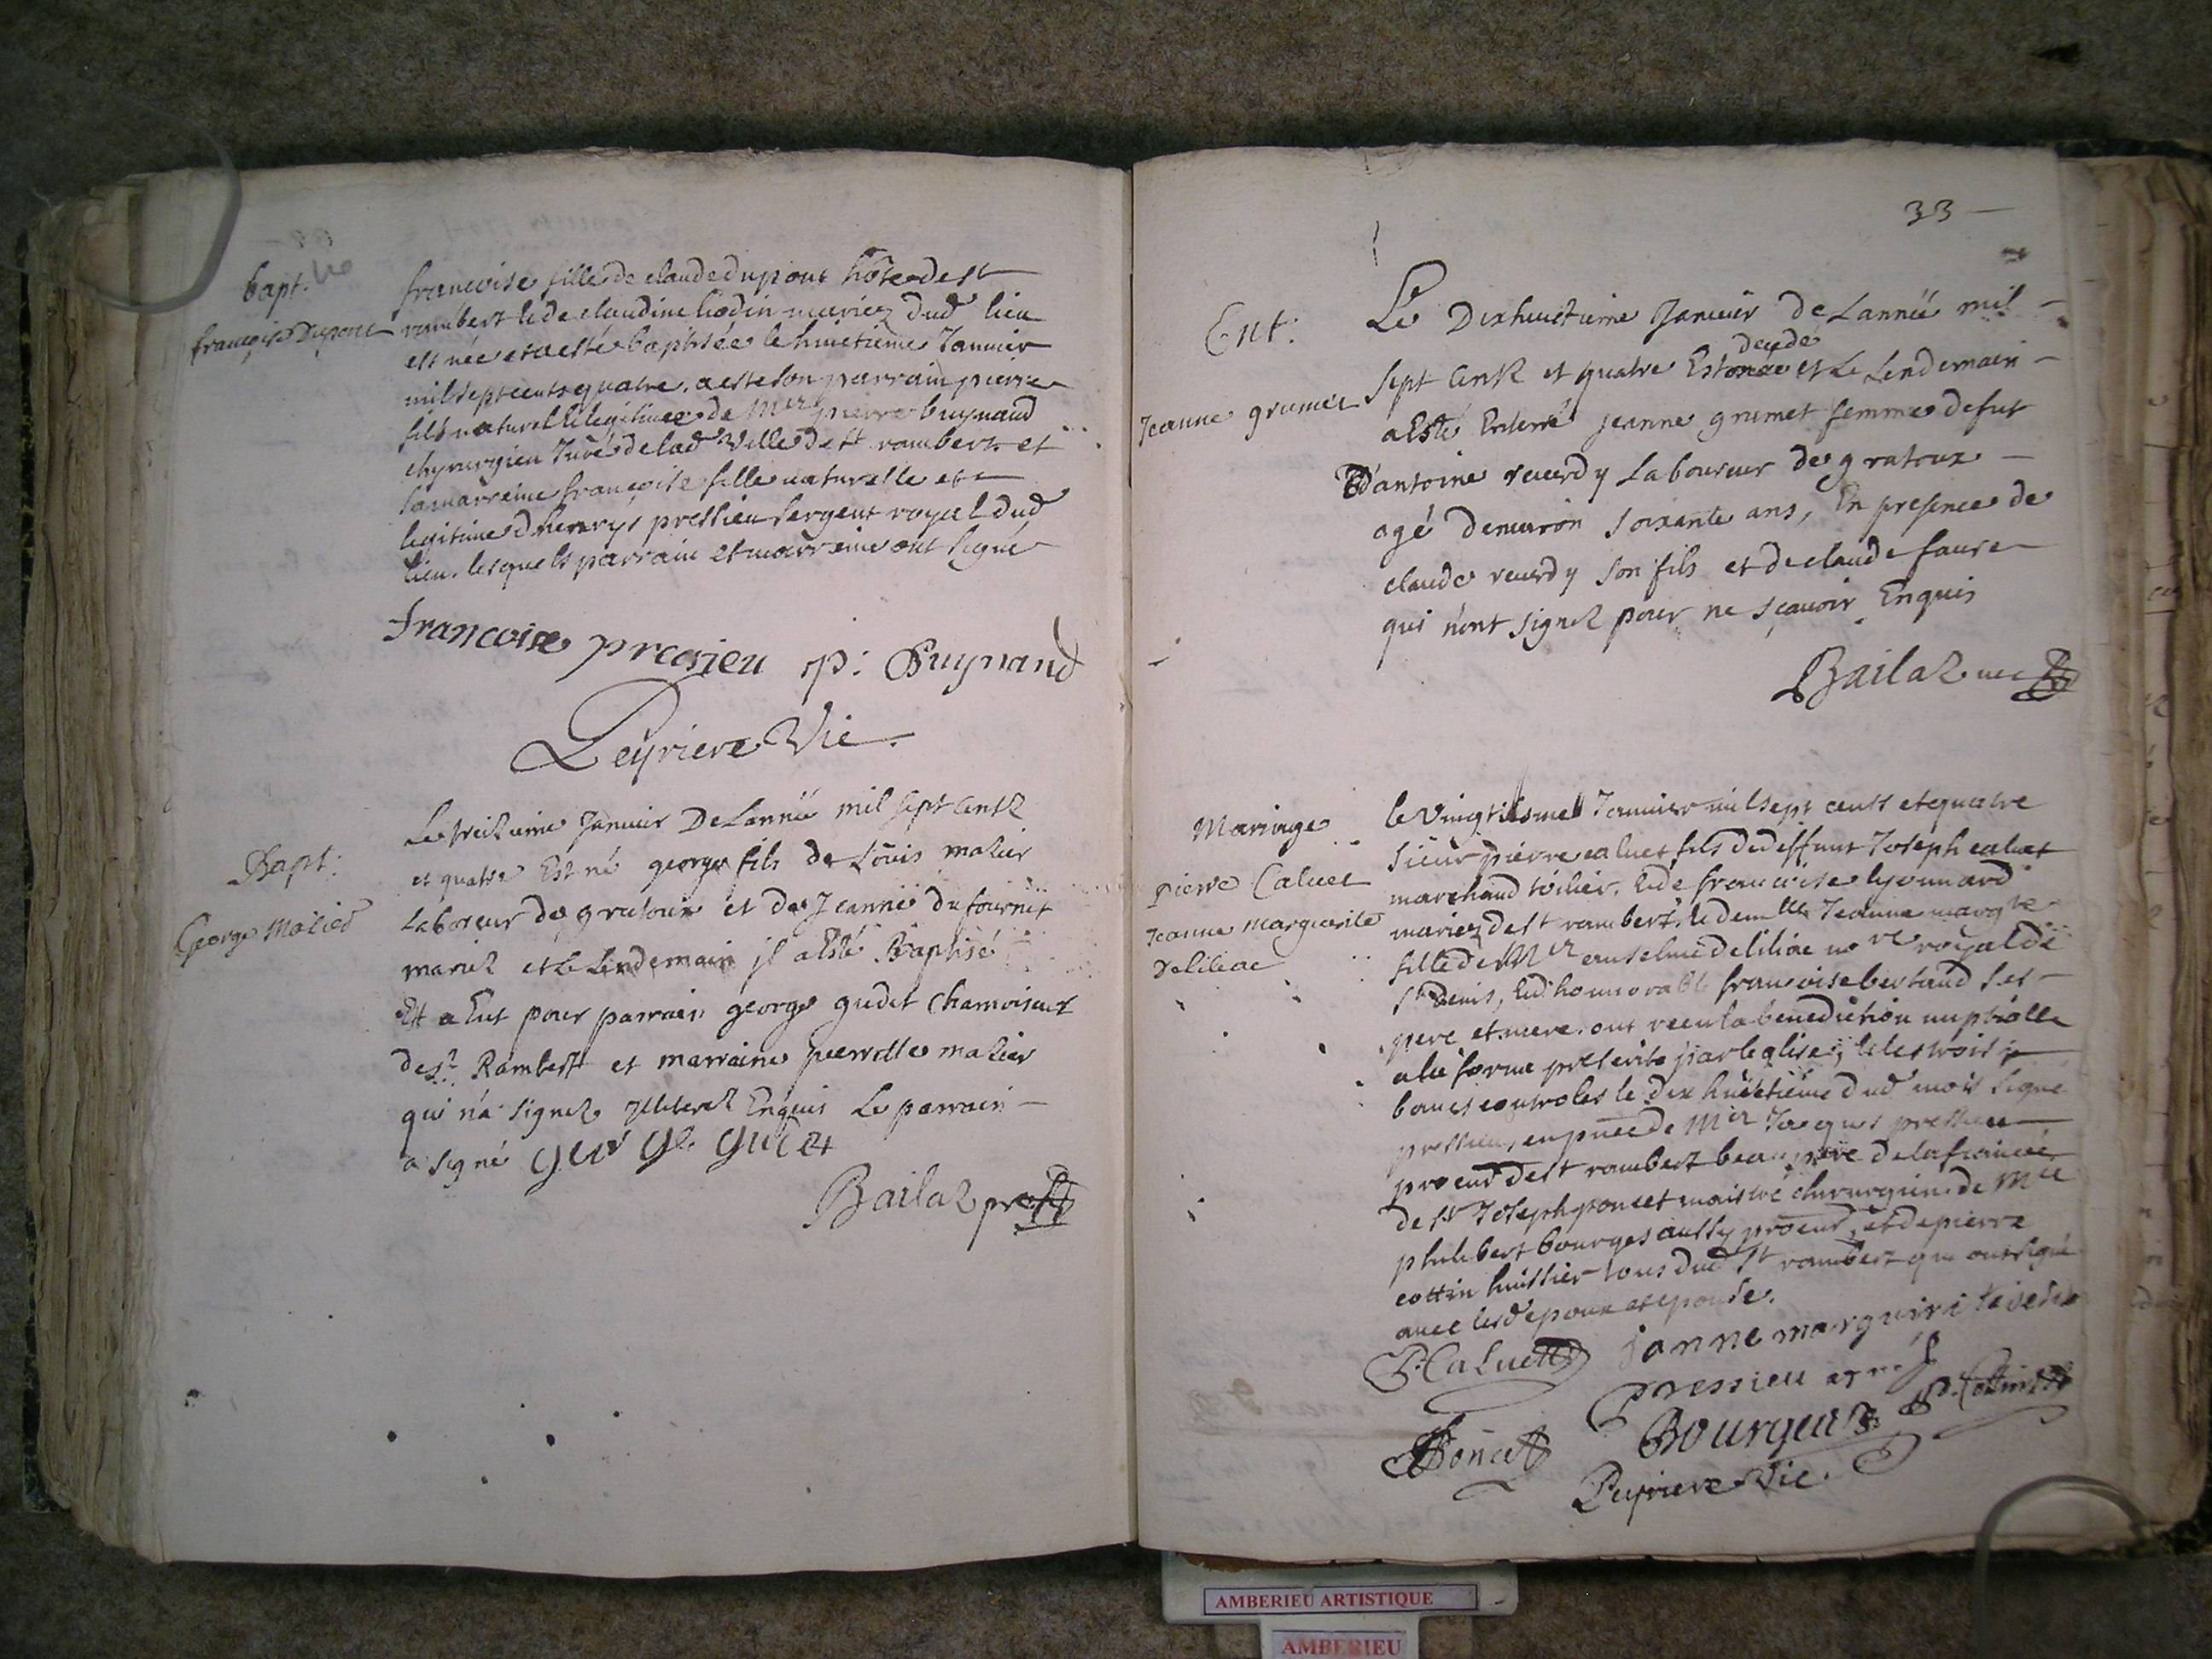 bapt.
françoise Dupont
francoise fille de claude dupont hôte de st
rambert & de claudine liodin mariez dud lieu
est née et a esté baptisée le huictieme Januier
mil sept cents quatre. a esté son parrain pierre
fils naturel & legitime de Mre pierre buynand
chyrurgien Juré de lad ville de st rambert et
sa marreine françoise fille naturelle et
legitime d'henrys pressieu sergent royal dud
lieu. lesquels parrain et marreine ont signé
francoise presieu p: Buynand
Peÿriere Vic.
Bapt:
George Mazier
Le treizieme Januier De Lannée mil sept centz
et quatre Est né george fils de Loüis mazier
Laboureur de gratoux et de Jeanne du fournet
mariez et le Lendemain jl a Esté Baptisé
Et a Eut pour parrain george gudet Chamoiseur
de st. Rambert et marraine pierrotte mazier
qui n'a signez Jlliterez Enquis Le parrain
a signé
Bailaz
33
Ent:
Jeanne grumet
Le Dixhuictieme Januier De Lannée mil
decedé
sept centz et quatre Est et Le Lendemain
a Esté Enterré jeanne grumet femme de fut
d'antoine reuerdy Laboureur de gratoux
agé denuiron soixante ans, En presence de
claude reuerdy son fils et de claude faure
qui n'ont signez pour ne scauoir Enquis
Bailaz vic
Mariage
pierre Caluet
Jeanne marguerite
Deliliac
le vingtiesme Januier mil sept cents et quatre
sieur pierre caluet fils de deffunt Joseph caluet
marchand toilier, & de francoise lyonnard
mariez de st rambert, & demlle Jeanne margte
fille de Mre anselme deliliac nore royal de
st Denis, & d'honnorable francoise bertaud ses
pere et mere. ont receu la benediction nuptialle
a la forme prescrite par leglise, & les trois
bancs controles le dix huictieme dud mois signé
pressieu, en pnce de Mre Jacques pressieu
procur de st rambert beau pere de la fiancée
de sr Joseph poncet maistre chirurgien de Mre
philibert bourges aussy procur, et de pierre
cottin huissier tous dud st rambert qui ont signé
auec lesd epoux et epouse.
P. Caluet janne marguirite
Pressieu P. Cottin
Poncet Bourgeus
Peyriere Vic.
AMBERIEU ARTISTIQUE
AMBERIEU